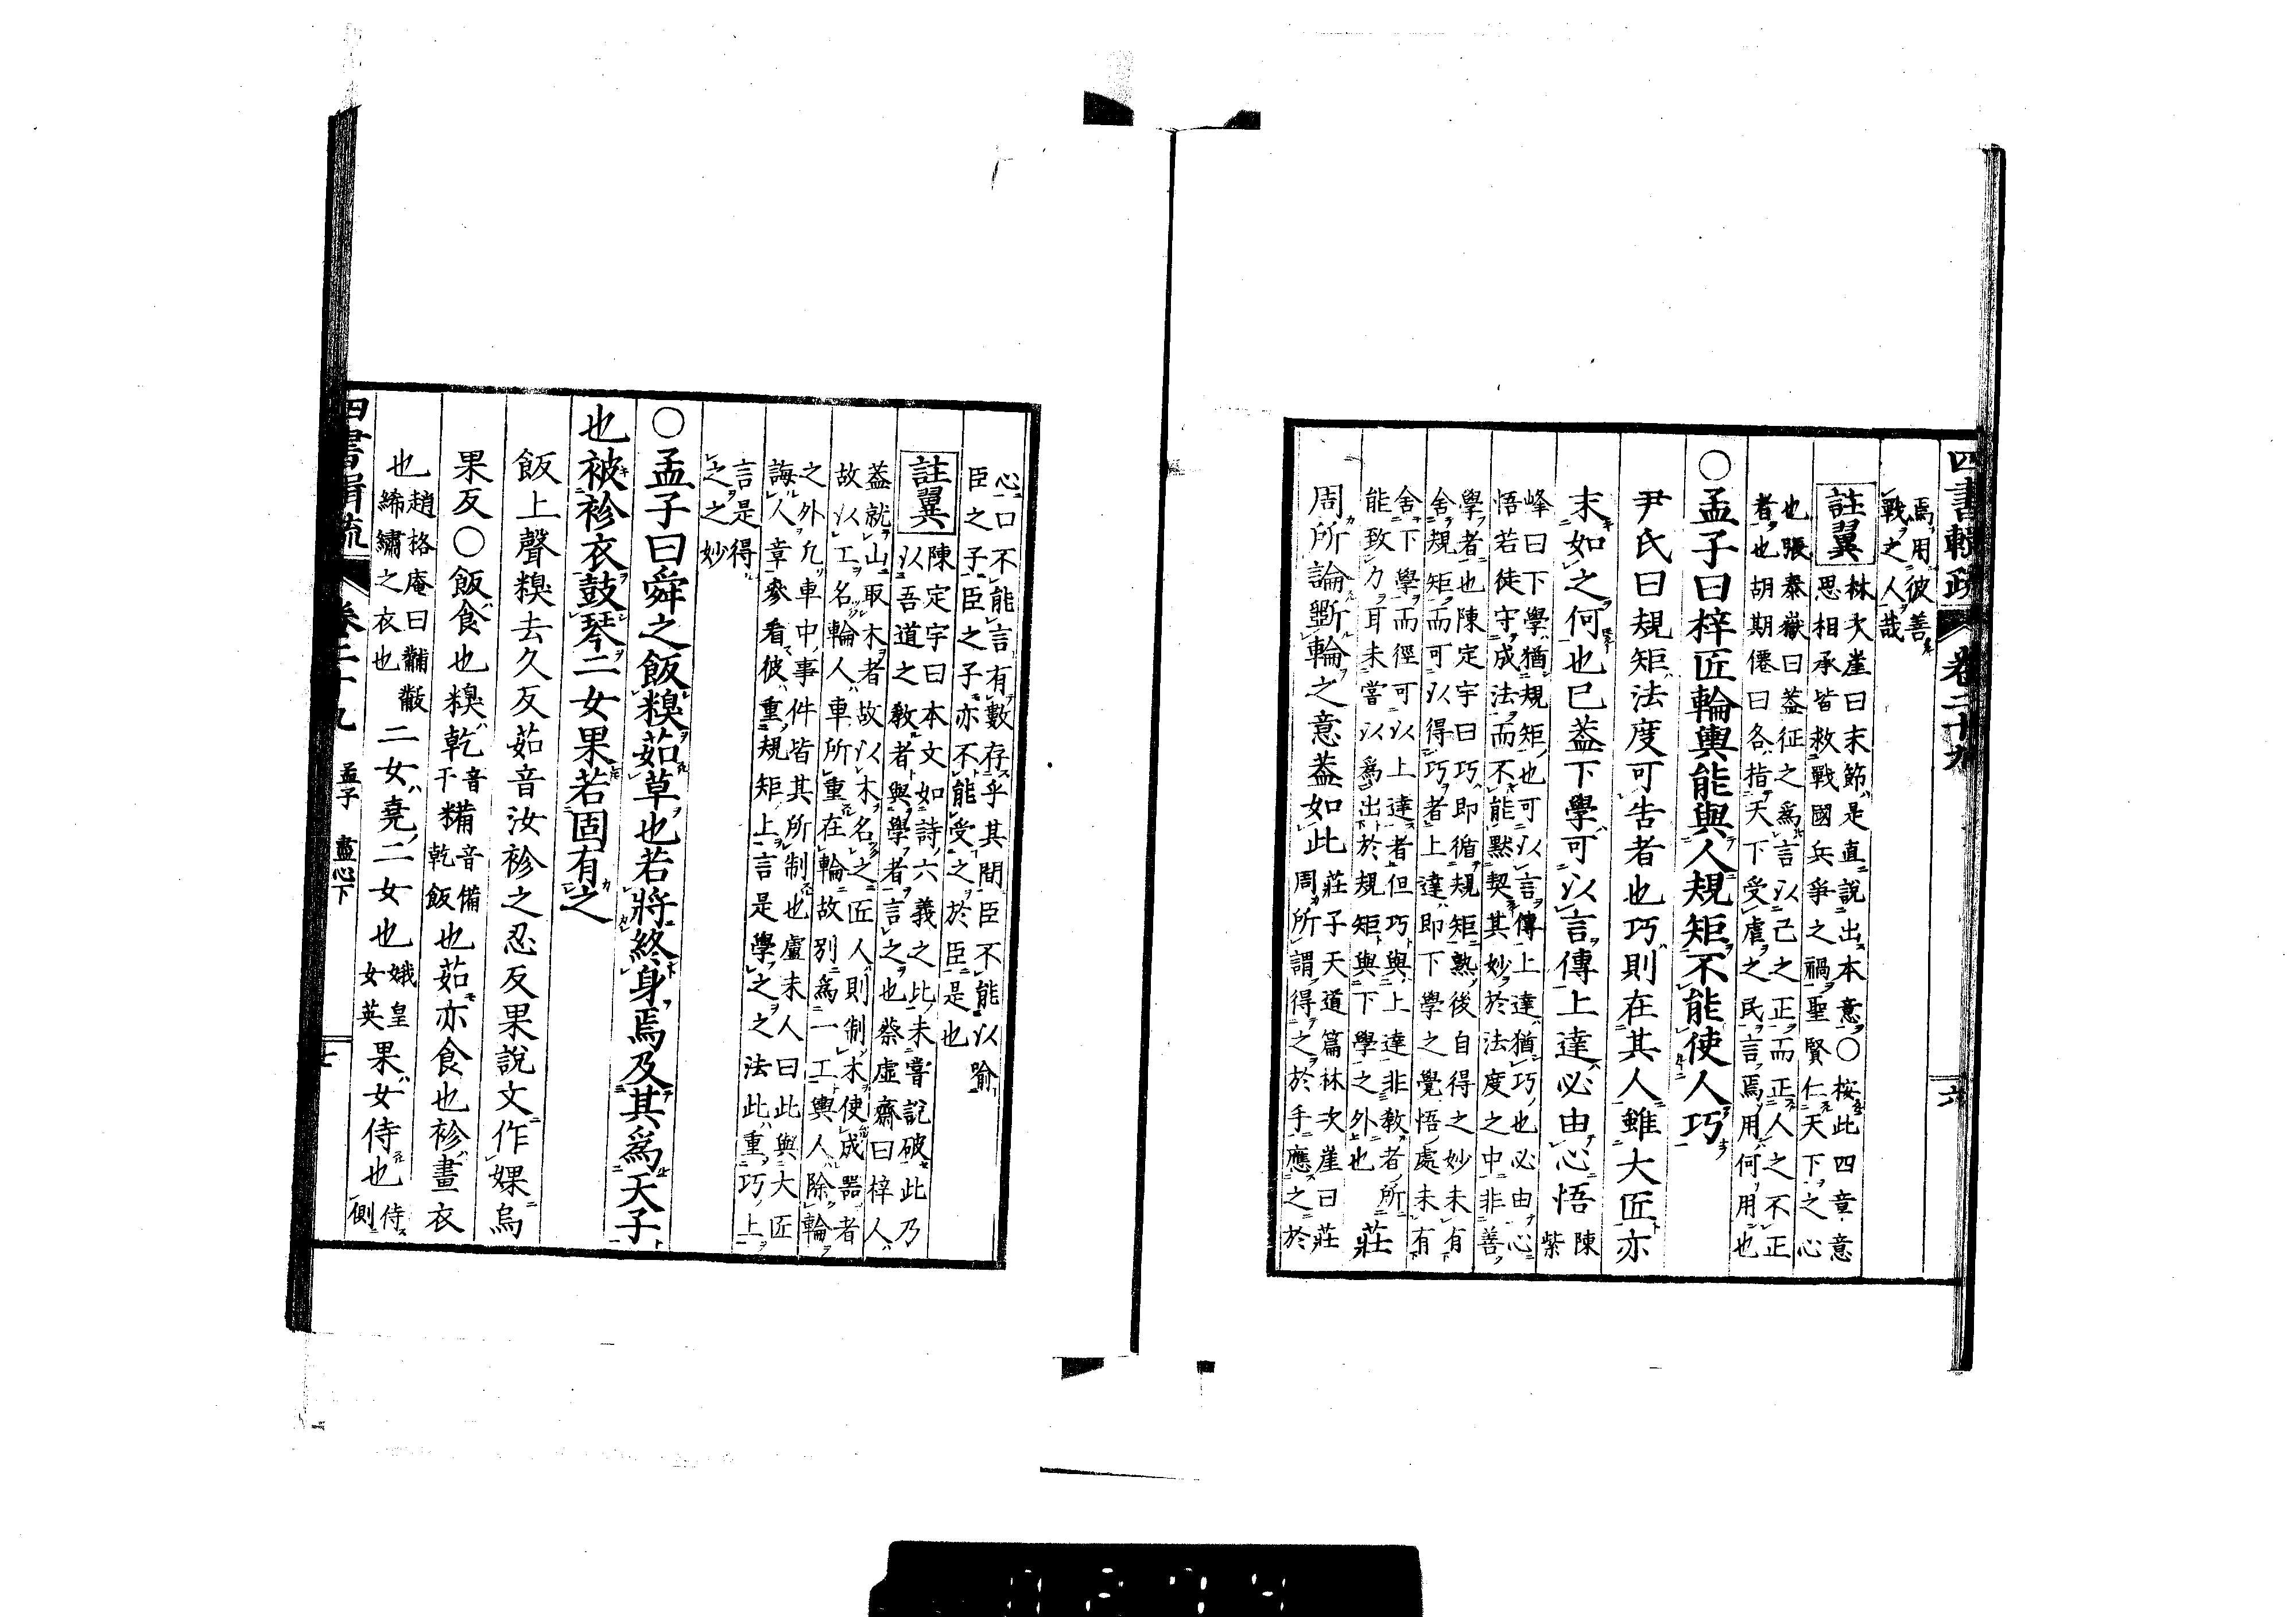 四書輯疏 卷二十九 六
焉用彼善
戰之人哉
註翼
林次崖曰末節是直說出本意○按此四章意
思相承皆救戰國兵爭之禍聖賢仁天下之心
也張泰嶽曰蓋征之爲言以己之正而正人之不正
者也胡期僊曰各指天下受虐之民言焉用何用也
○孟子曰梓匠輪輿能與人規矩不能使人巧
尹氏曰規矩法度可告者也巧則在其人雖大匠亦
末如之何也已蓋下學可以言傳上達必由心悟
陳紫
峰曰下學猶規矩也可以言傳上達猶巧也必由心
悟若徒守成法而不能默契其妙於法度之中非善
學者也陳定宇曰巧即循規矩熟後自得之妙未有
舍規矩而可以得巧者上達即下學之覺悟處未有
舍下學而徑可以上達者但巧與上達非教者所
能致力耳未嘗以爲出於規矩與下學之外也
莊
周所論斲輪之意蓋如此
莊子天道篇林次崖曰莊
周所謂得之於手應之於
心口不能言有數存乎其間臣不能以喻
臣之子臣之子亦不能受之於臣是也
註翼
陳定宇曰本文如詩六義之比未嘗說破此乃
以吾道之教者與學者言之也蔡虛齋曰梓人
蓋就山取木者故以木名之匠人則制木使成器者
故以工名輪人車所重在輪故別爲一工輿人除輪
之外凡車中事件皆其所制也盧未人曰此與大匠
誨人章參看彼重規矩上言是學之之法此重巧上
言是得
之之妙
○孟子曰舜之飯糗茹草也若將終身焉及其爲天子
也被袗衣鼓琴二女果若固有之
飯上聲糗去久反茹音汝袗之忍反果說文作婐烏
果反○飯食也糗乾音干糒音備乾飯也茹亦食也袗畫衣
也趙格庵曰黼黻絺繡之衣也二女堯二女也娥皇女英果女侍也侍側
四書輯疏 卷二十九 孟子 盡心下 七